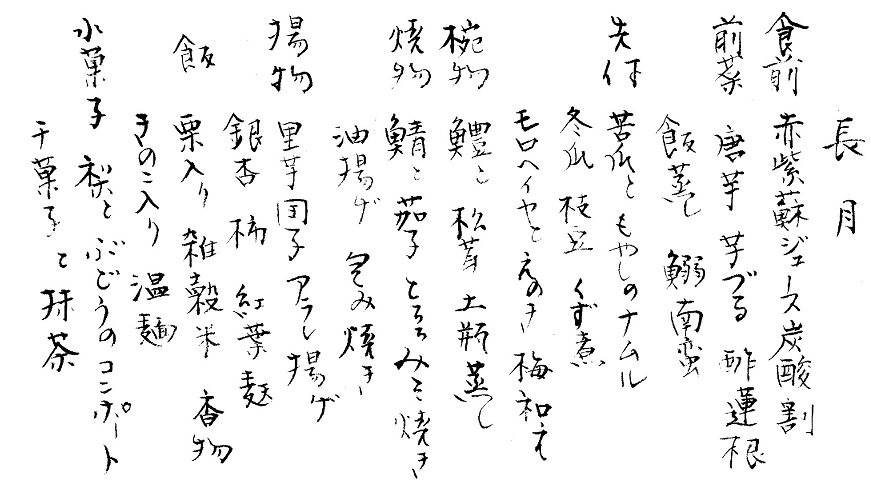 長月
食前 赤紫蘇ジュース炭酸割
前菜 唐芋 芋づる 酢蓮根
飯蒸し 鰯南蛮
先付 苦瓜ともやしのナムル
冬瓜 枝豆 くず煮
モロヘイヤとえのき 梅和え
椀物 鱧と松茸土瓶蒸し
焼物 鯖と茄子とろろみそ焼き
油揚げ 包み焼き
揚物 里芋団子アラレ揚げ
銀杏 柿 紅葉麩
飯 栗入り 雑穀米 香物
きのこ入り温麺
水菓子 梨とぶどうのコンポート
干菓子と抹茶